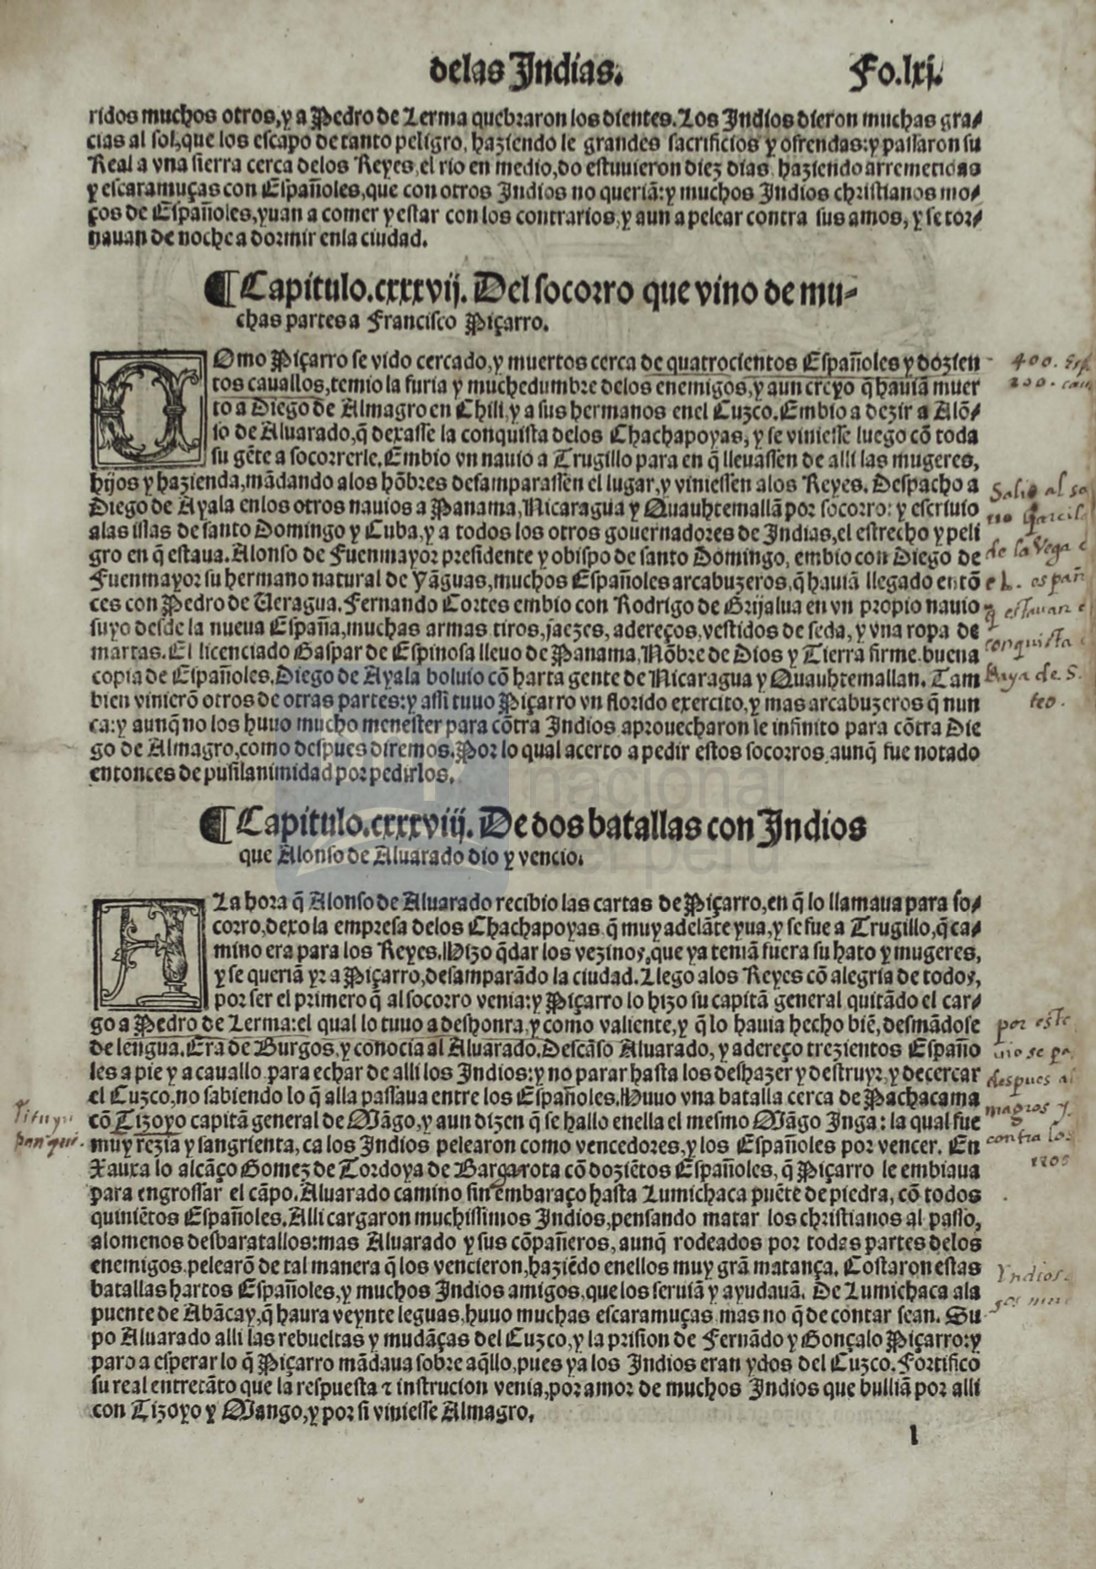 delas Indias. Fo.lxj.
ridos muchos otros,y a Pedro de Lerma quebraron los dientes.Los Indios dieron muchas gra/
cias al sol,que los escapo de tanto peligro, haziendo le grandes sacrificios y ofrendas:y passaron su
Real a vna sierra cerca delos Reyes,el rio en medio,do estuvieron diez dias haziendo arremetidas
y escaramuças con Españoles,que con otros Indios no queriã:y muchos Indios christianos mo/
ços de Españoles,yuan a comer y estar con los contrarios,y aun a pelear contra sus amos, y se tor/
nauan de noche a dormir enla ciudad.
¶Capitulo.cxxxvij. Del socorro que vino de mu-
chas partes a Francisco Piçarro.
COmo Piçarro se vido cercado,y muertos cerca de quatrocientos Españoles y dozien
tos cauallos,temio la furia y muchedumbre delos enemigos,y aun creyo q̃ hauiã muer
to a Diego de Almagro en Chili,y a sus hermanos enel Cuzco.Embio a dezir a Alõ/
so de Aluarado,q̃ dexasse la conquista delos Chachapoyas, y se viniesse luego cõ toda
su gẽte a socorrerle.Embio vn nauio a Trugillo para en q̃ lleuassen de alli las mugeres,
hijos y hazienda,mãdando alos hõbres desamparassen el lugar,y viniessen alos Reyes. Despacho a
Diego de Ayala enlos otros nauios a Panama,Nicaragua y Quauhtemallãn por socorro: y escriuio
alas islas de santo Domingo y Cuba,y a todos los otros gouernadores de Indias,el estrecho y peli
gro en q̃ estaua.Alonso de Fuenmayor presidente y obispo de santo Domingo, embio con Diego de
Fuenmayor su hermano natural de Yãguas,muchos Españoles arcabuzeros,q̃ hauiã llegado entõ
ces con Pedro de Ueragua.Fernando Cortes embio con Rodrigo de Grijalua en vn propio nauio
suyo desde la nueua España,muchas armas tiros,jaezes, adereços,vestidos de seda, y vna ropa de
martas. El licenciado Gaspar de Espinosa lleuo de Panama,Nõbre de Dios y Tierra firme.buena
copia de Españoles.Diego de Ayala boluio cõ harta gente de Nicaragua y Quauhtemallan. Tam
bien vinierõ otros de otras partes:y assi tuuo Piçarro vn florido exercito,y mas arcabuzeros q̃ nun
ca:y aunq̃ no los huuo mucho menester para cõtra Indios aprouecharon le infinito para cõtra Die
go de Almagro,como despues diremos.Por lo qual acerto a pedir estos socorros,aunq̃ fue notado
entonces de pusilanimidad por pedirlos.
¶Capitulo.cxxxviij. De dos batallas con Indios
que Alonso de Aluarado dio y vencio.
ALa hora q̃ Alonso de Aluarado recibio las cartas de Piçarro,en q̃ lo llamaua para so/
corro,dexo la empresa delos Chachapoyas q̃ muy adelãte yua,y se fue a Trugillo,q̃ ca/
mino era para los Reyes.Hizo q̃dar los vezinos,que ya teniã fuera su hato y mugeres,
y se queriã yr a Piçarro,desamparãdo la ciudad.Llego alos Reyes cõ alegria de todos,
por ser el primero q̃ al socorro venia:y Piçarro lo hizo su capitã general quitãdo el car/
go a Pedro de Lerma:el qual lo tuuo a deshonra,y como valiente,y q̃ lo hauia hecho biẽ,desmãdose
de lengua.Era de Burgos,y conocia al Aluarado.Descãso Aluarado, y adereço trezientos Españo
les a pie y a cauallo para echar de alli los Indios:y no parar hasta los deshazer y destruyr,y decercar
el Cuzco,no sabiendo lo q̃ alla passaua entre los Españoles.Huuo vna batalla cerca de Pachacama
cõ Tizoyo capitã general de Mãgo,y aun dizen q̃ se hallo enella el mesmo Mãgo Inga: la qual fue
muy rezia y sangrienta, ca los Indios pelearon como vencedores,y los Españoles por vencer. En
Xauxa lo alcãço Gomez de Tordoya de Bargarota cõ doziẽtos Españoles, q̃ Piçarro le embiaua
para engrossar el cãpo.Aluarado camino sin embaraço hasta Lumichaca puẽte de piedra, cõ todos
quiniẽtos Españoles.Alli cargaron muchissimos Indios,pensando matar los christianos al passo,
alomenos desbaratallos:mas Aluarado y sus cõpañeros, aunq̃ rodeados por todas partes delos
enemigos,pelearõ de tal manera q̃ los vencieron,haziẽdo enellos muy grã matança. Costaron estas
batallas hartos Españoles,y muchos Indios amigos,que los seruiã y ayudauã. De Lumichaca ala
puente de Abãcay,q̃ haura veynte leguas,huuo muchas escaramuças mas no q̃ de contar sean. Su
po Aluarado alli las rebueltas y mudãças del Cuzco,y la prision de Fernãdo y Gonçalo Piçarro:y
paro a esperar lo q̃ Piçarro mãdaua sobre aq̃llo,pues ya los Indios eran ydos del Cuzco.Fortifico
su real entretãto que la respuesta ⁊ instrucion venia,por amor de muchos Indios que bulliã por alli
con Tizoyo y Mango,y por si viniesse Almagro.
l
400. Esp
200. cau
Salio al so
de la Vega
españ
q̃ estauan
conquista
Baya de S.
teo.
por este
despues al
magros y
contra los
Yndios.
nacional
del perú